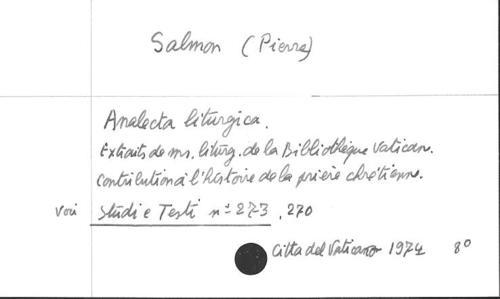 Salmon (Pierre)
Analecta liturgica.
Extraits de ms. liturg. de la Bibliothèque Vatican.
Contribution à l'histoire de la prière chrétienne.
Voir Studi e Testi nº 273, 270
Citta del Vaticano 1974 8º